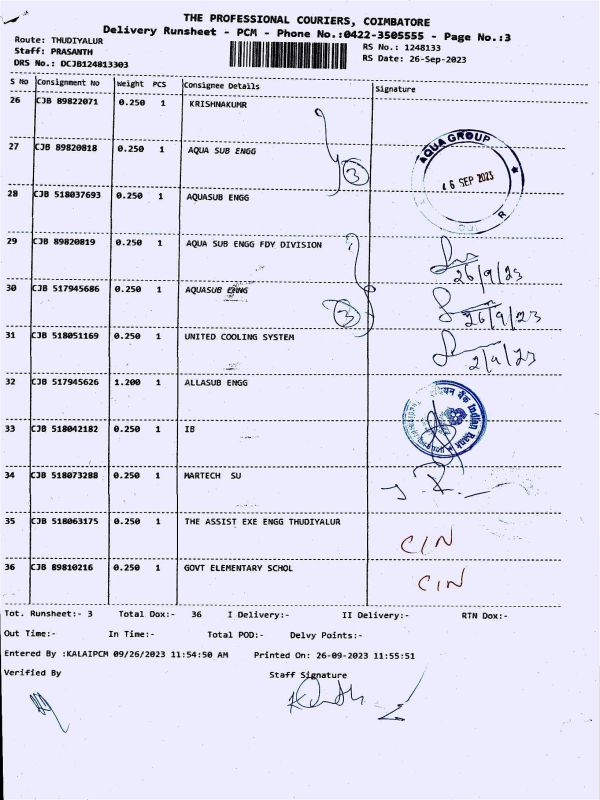 THE PROFESSIONAL COURIERS, COIMBATORE
Delivery Runsheet - PCM - Phone No.:0422-3505555 - Page No.:3
Route: THUDIYALUR
RS No.: 1248133
Staff: PRASANTH
RS Date: 26-Sep-2023
DRS No.: DCJB124813303
S No Consignment No Weight PCS Consignee Details Signature
26 CJB 89822071 0.250 1 KRISHNAKUMR
27 CJB 89820818 0.250 1 AQUA SUB ENGG
3
AQUA GROUP
SEP 2023
28 CJB 518037693 0.250 1 AQUASUB ENGG
29 CJB 89820819 0.250 1 AQUA SUB ENGG FDY DIVISION
26/9/23
30 CJB 517945686 0.250 1 AQUASUB ENGG
3
26/9/23
31 CJB 518051169 0.250 1 UNITED COOLING SYSTEM
2/9/23
32 CJB 517945626 1.200 1 ALLASUB ENGG
33 CJB 518042182 0.250 1 IB
Indian Bank
34 CJB 518073288 0.250 1 MARTECH SU
35 CJB 518063175 0.250 1 THE ASSIST EXE ENGG THUDIYALUR
C/N
36 CJB 89810216 0.250 1 GOVT ELEMENTARY SCHOL
C/N
Tot. Runsheet:- 3 Total Dox:- 36 I Delivery:- II Delivery:- RTN Dox:-
Out Time:- In Time:- Total POD:- Delvy Points:-
Entered By :KALAIPCM 09/26/2023 11:54:50 AM Printed On: 26-09-2023 11:55:51
Verified By Staff Signature